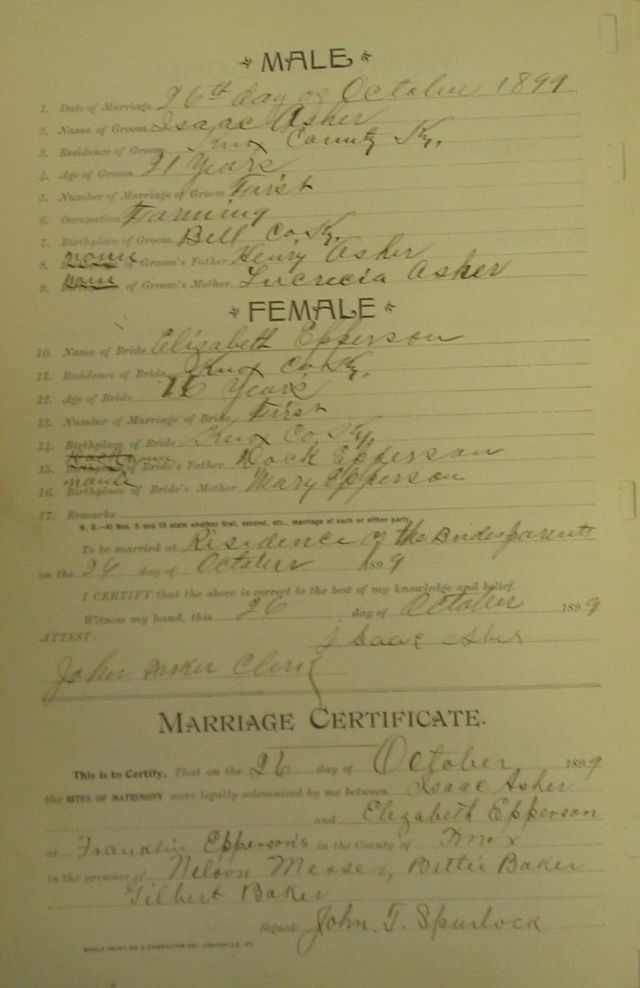 MALE
1. Date of Marriage 26th day of October 1899
2. Name of Groom Isaac Asher
3. Residence of Groom Knox County Ky.
4. Age of Groom 21 Years
5. Number of Marriage of Groom First
6. Occupation Farming
7. Birthplace of Groom Bell Co Ky.
8. name of Groom's Father Henry Asher
9. name of Groom's Mother Lucrecia Asher
FEMALE
10. Name of Bride Elizabeth Epperson
11. Residence of Bride Knox Co Ky.
12. Age of Bride 16 Years
13. Number of Marriage of Bride First
14. Birthplace of Bride Knox Co. Ky.
15. name of Bride's Father Dock Epperson
16. name Birthplace of Bride's Mother Mary Epperson
17. Remarks
N. B.—At Nos. 5 and 13 state whether first, second, etc., marriage of each or either party.
To be married at Risidence of the Brides parents
on the 26 day of October 1899
I CERTIFY that the above is correct to the best of my knowledge and belief.
Witness my hand, this 26 day of October 1899
ATTEST: Isaac Asher
John Parker Clerk
MARRIAGE CERTIFICATE.
This is to Certify, That on the 26 day of October 1899
the RITES OF MATRIMONY were legally solemnized by me between Isaac Asher
and Elizabeth Epperson
at Franklin Epperson's in the County of Knox
in the presence of Nelson Messer, Bettie Baker
Gilbert Baker
Signed: John T. Spurlock